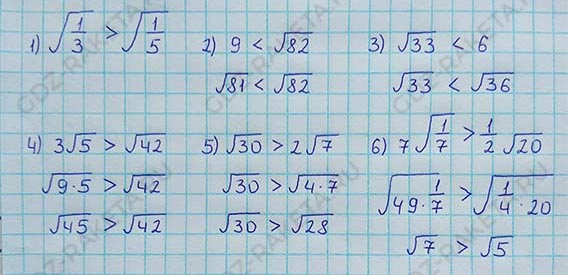 1) √(1/3) > √(1/5)
2) 9 < √82
√81 < √82
3) √33 < 6
√33 < √36
4) 3√5 > √42
√(9·5) > √42
√45 > √42
5) √30 > 2√7
√30 > √(4·7)
√30 > √28
6) 7√(1/7) > 1/2 √20
√(49·1/7) > √(1/4·20)
√7 > √5
GDZ-RAKETA.RU